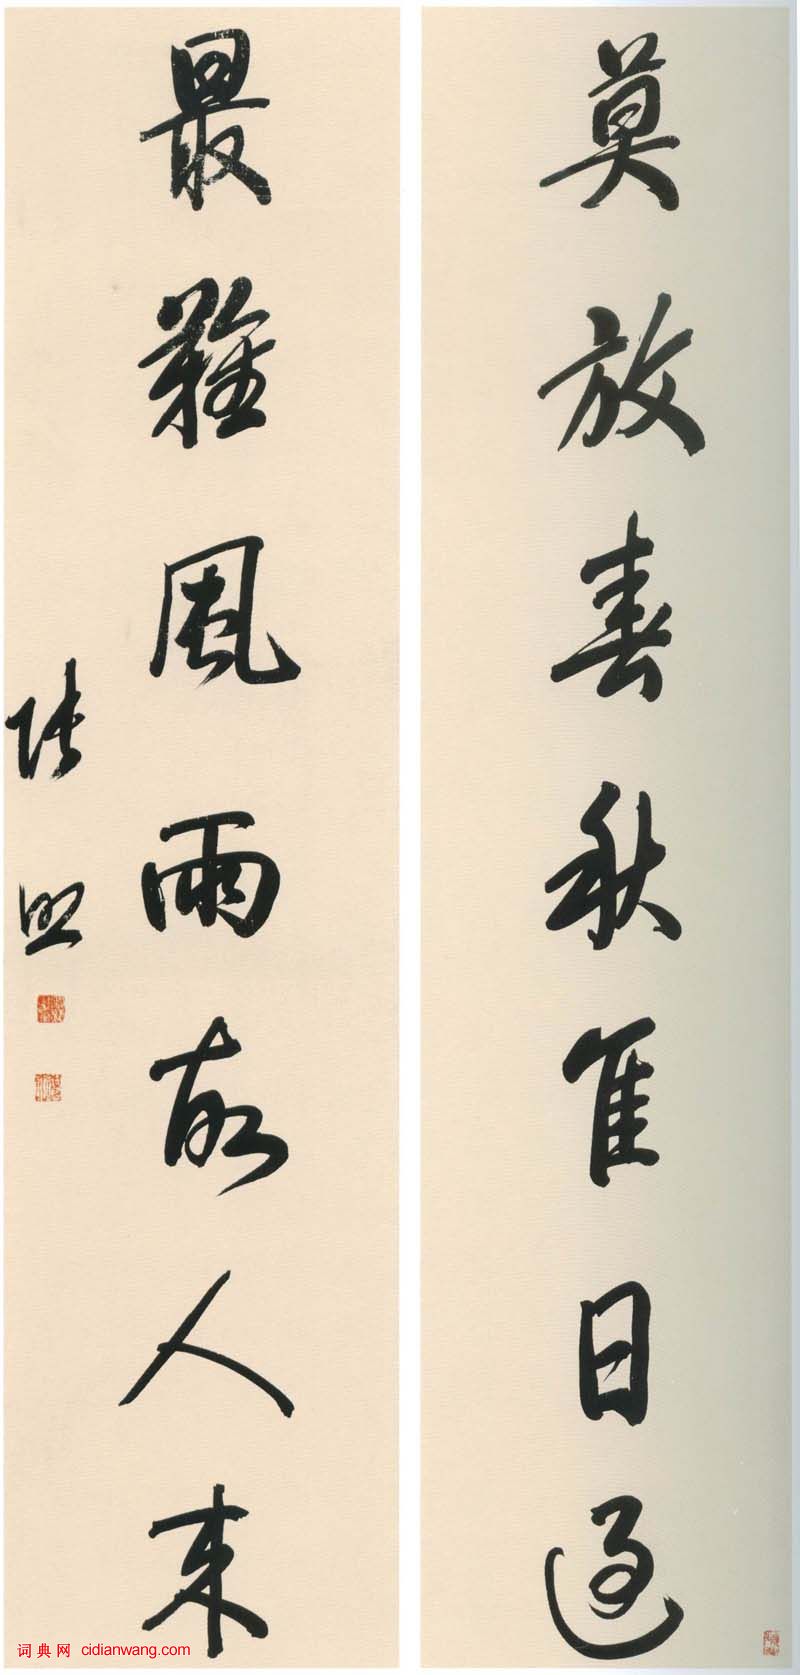 莫放春秋隹日過
最難風雨故人来
張照
词典网 cidianwang.com